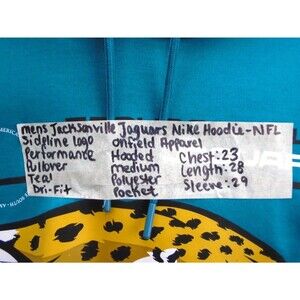 mens Jacksonville Jaguars Nike Hoodie-NFL
Sideline Logo Onfield Apparel
Performance Hooded Chest:23
Pullover medium Length:28
Teal Polyester Sleeve:29
Dri-Fit Pocket